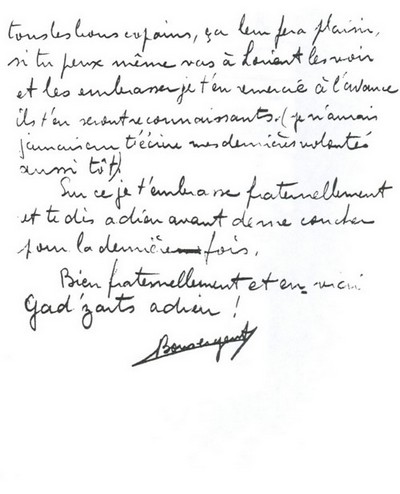 tous les bons copains, ça leur fera plaisir,
si tu peux même vas à Lorient les voir
et les embrasser je t'en remercie à l'avance
ils t'en seront reconnaissants. (je n'aurais
jamais cru t'écrire mes dernières volontés
aussi tôt)
Sur ce je t'embrasse fraternellement
et te dis adieu avant de me coucher
pour la dernière fois.
Bien fraternellement et en vrai
Gad'zarts adieu !
Bonsergent